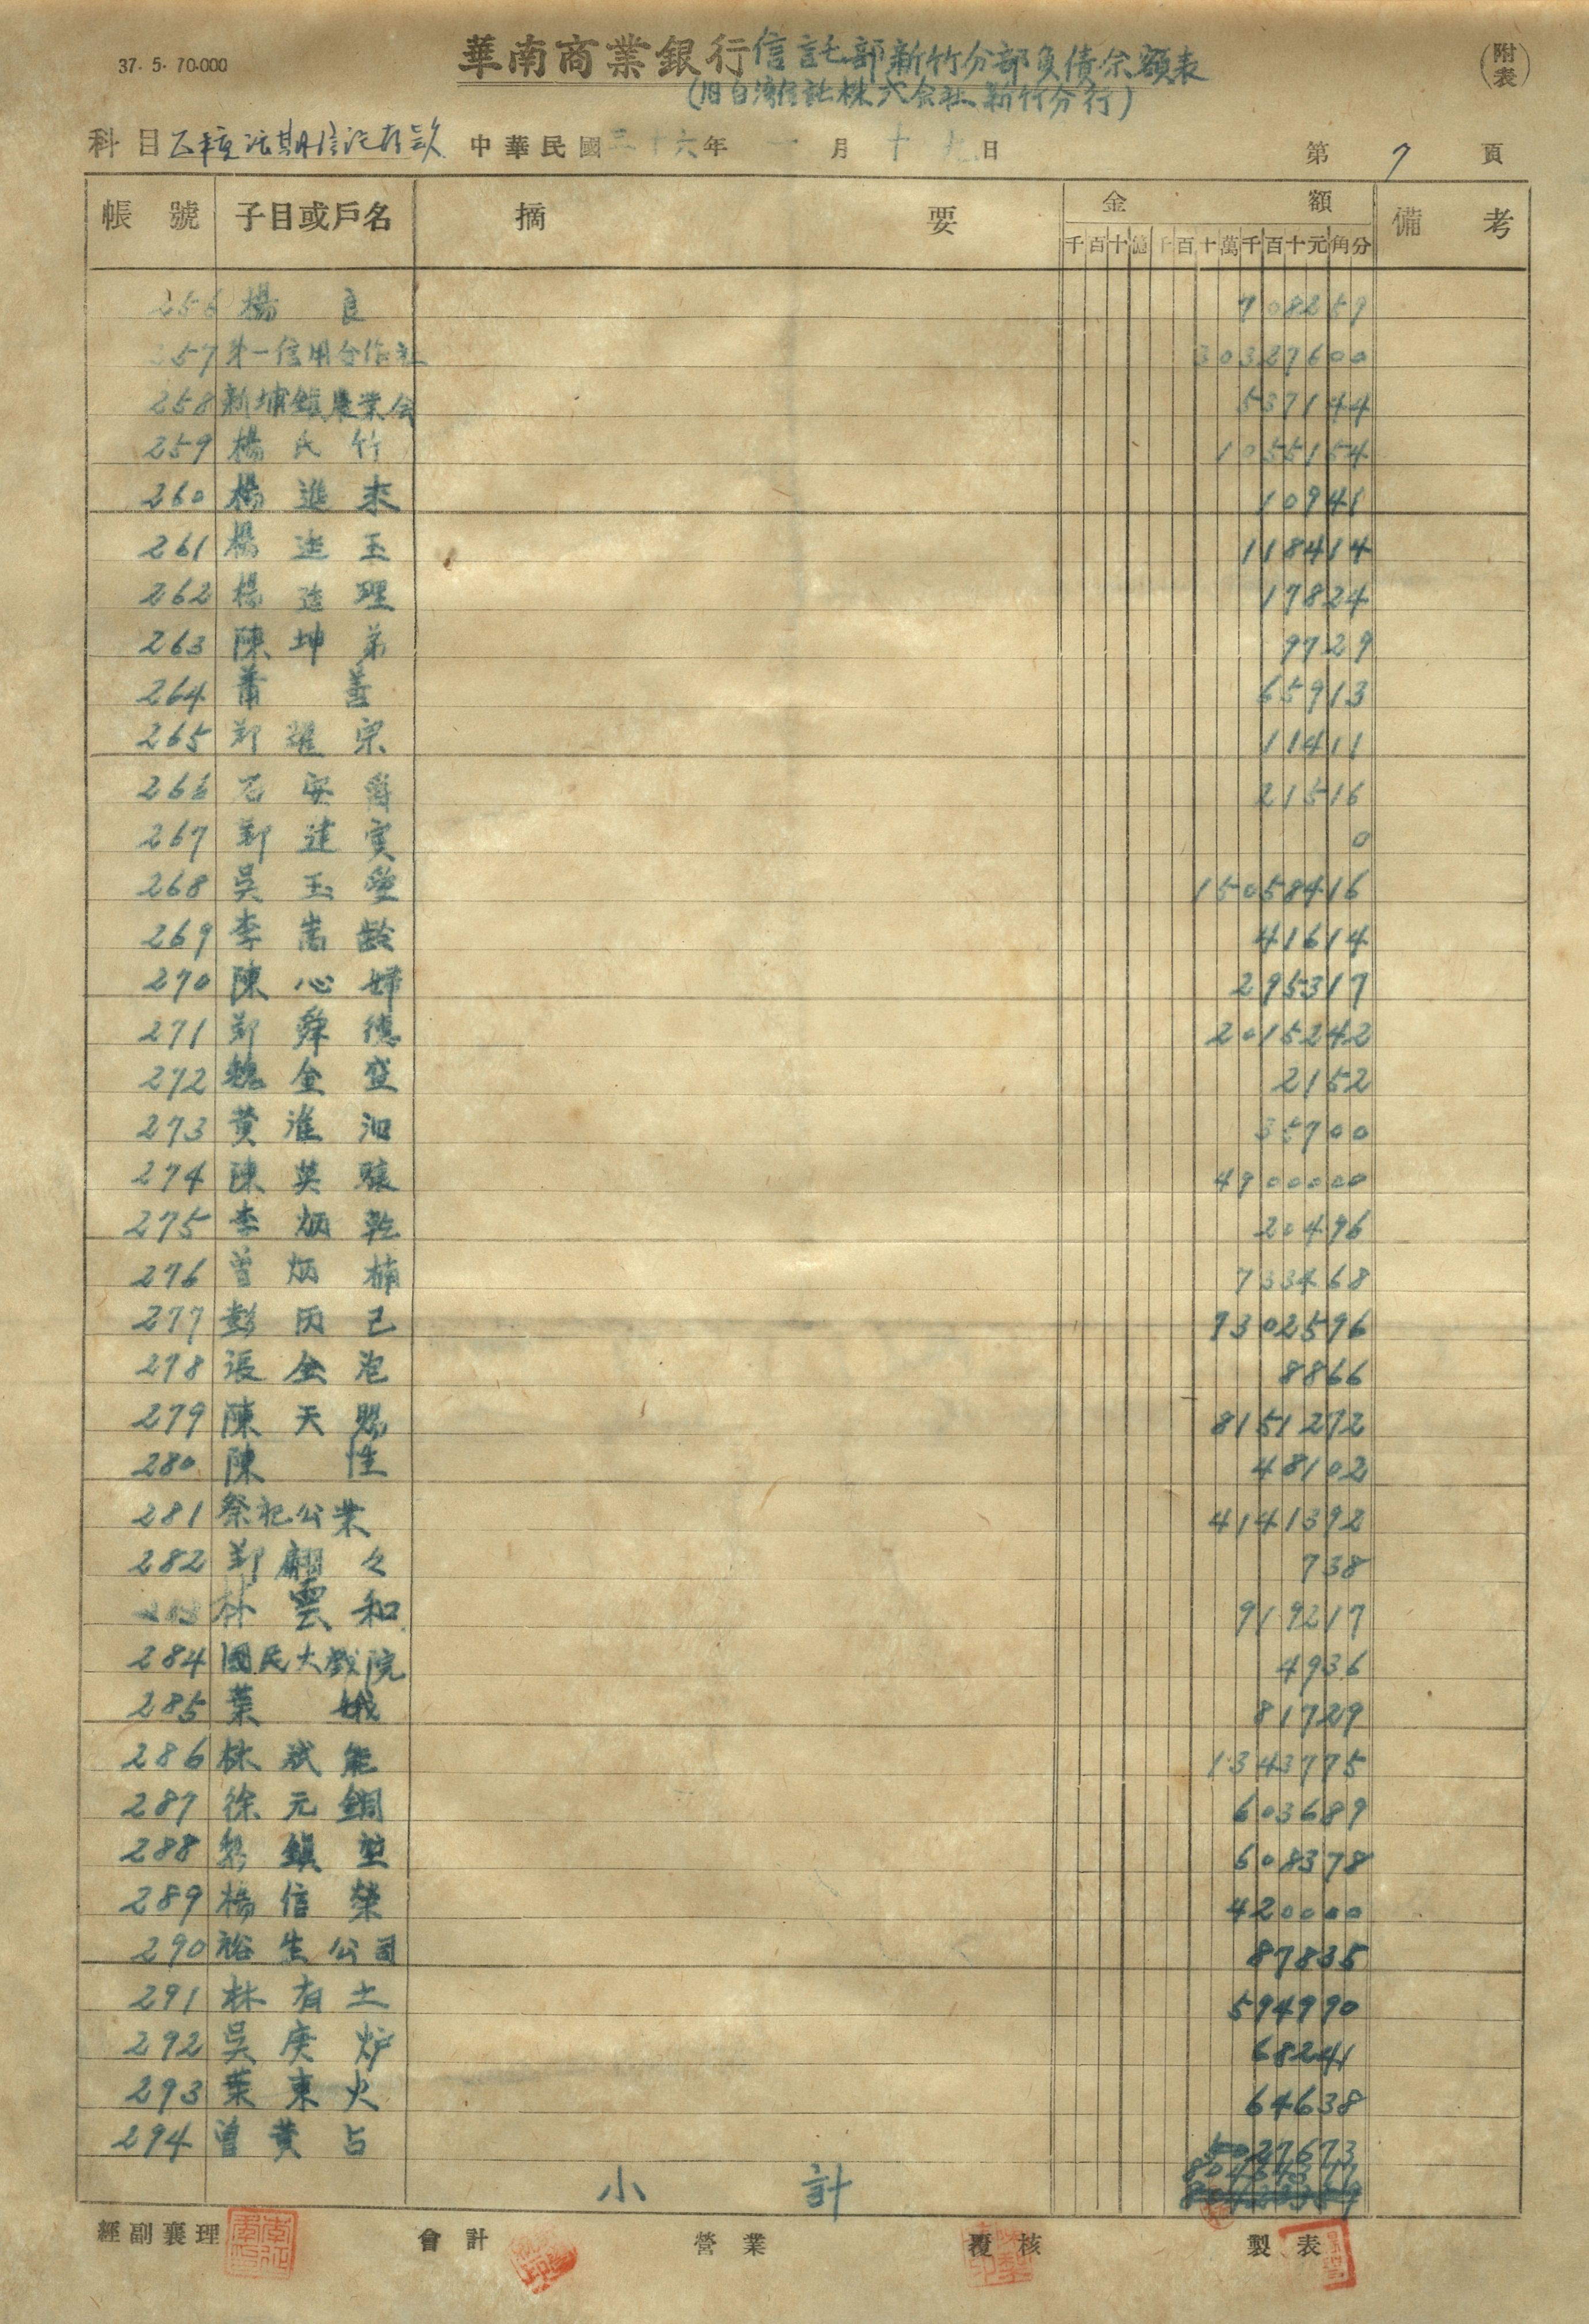 37. 5. 70.000
華南商業銀行信託部新竹分部負債余額表
(附表)
(旧台湾信託株式会社新竹分行)
科目 乙種活期信託存款 中華民國三十六年一月十九日 第 7 頁
帳號 子目或戶名 摘要 金額 備考
千百十億千百十萬千百十元角分
256 楊良 708259
257 第一信用合作社 30327600
258 新埔鎮農業会 537144
259 楊氏竹 1055154
260 楊進來 10941
261 楊進玉 118414
262 楊進理 17824
263 陳坤弟 9729
264 蕭善 65913
265 鄭耀宗 11411
266 安 21516
267 鄭建寅 0
268 吳玉 15058416
269 李嵩齡 41614
270 陳心婦 295317
271 鄭舜德 2015242
272 魏金盛 2152
273 黃淮泗 35700
274 陳英 4900000
275 李炳乾 20496
276 曾炳楠 733468
277 彭丙己 9302596
278 張金泡 8866
279 陳天賜 8151272
280 陳性 48102
281 祭祀公業 4141392
282 鄭翩々 738
283 林雲和 919217
284 國民大戲院 4936
285 葉娥 81729
286 林斌能 1343775
287 徐元銅 603689
288 鎮 608378
289 楊信榮 420000
290 裕生公司 87835
291 林有土 594990
292 吳庚炉 68241
293 葉東火 64638
294 曾黃占 5027673
小計
經副襄理 會計 營業 覆核 製表